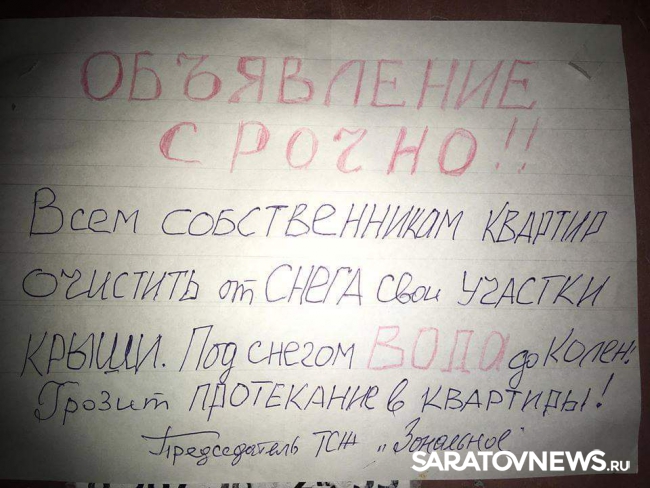 ОБЪЯВЛЕНИЕ
СРОЧНО!!
Всем СОБСТВЕННИКАМ КВАРТИР
ОЧИСТИТЬ от СНЕГА свои УЧАСТКИ
КРЫШИ. Под снегом ВОДА до колен!
Грозит ПРОТЕКАНИЕ в КВАРТИРЫ!
Председатель ТСЖ „Зональное"
SARATOVNEWS.RU